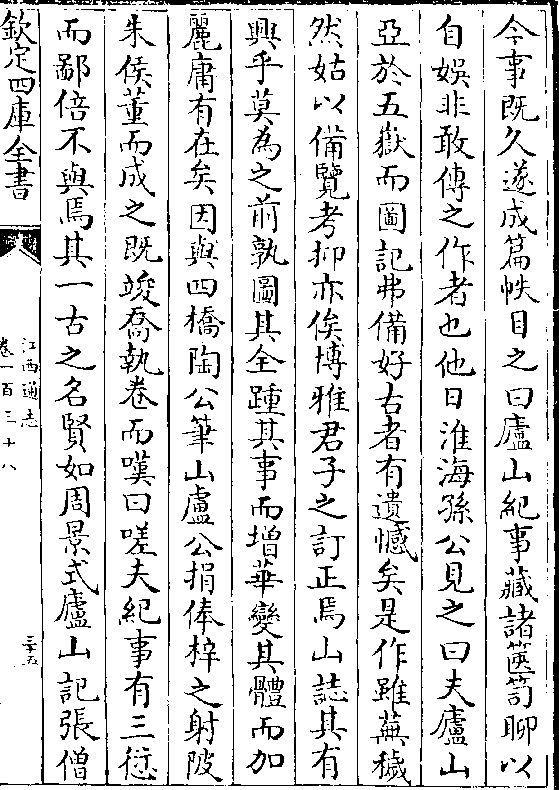 今事既久遂成篇帙目之曰廬山紀事藏諸篋笥聊以
自娛非敢傳之作者也他日淮海孫公見之曰夫廬山
亞於五嶽而圖記弗備好古者有遺憾矣是作雖蕪穢
然姑以備覽考抑亦俟博雅君子之訂正焉山誌其有
興乎莫為之前孰圖其全踵其事而增華變其體而加
麗庸有在矣因與四橋陶公筆山盧公捐俸梓之射陂
朱侯董而成之既竣喬執卷而嘆曰嗟夫紀事有三愆
而鄙倍不與焉其一古之名賢如周景式廬山記張僧
欽定四庫全書
江西通志
卷一百三十八
三十五